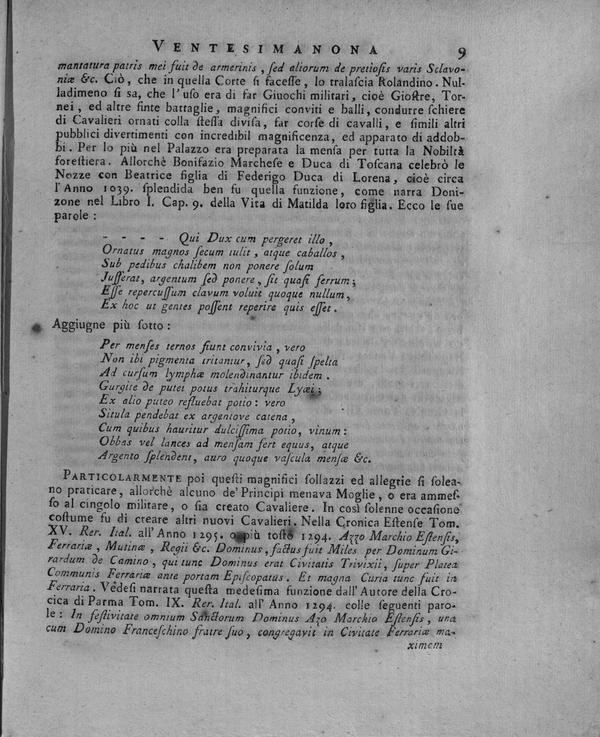 VENTESIMANONA 9
mantatura patris mei fuit de armerinis, ſed aliorum de pretioſis variis Sclavo-
niæ &c. Ciò, che in quella Corte ſi faceſſe, lo tralaſcia Rolandino. Nul-
ladimeno ſi sa, che l'uſo era di far Giuochi militari, cioè Gioſtre, Tor-
nei, ed altre finte battaglie, magnifici conviti e balli, condurre ſchiere
di Cavalieri ornati colla ſteſſa diviſa, far corſe di cavalli, e ſimili altri
pubblici divertimenti con incredibil magnificenza, ed apparato di addob-
bi. Per lo più nel Palazzo era preparata la menſa per tutta la Nobiltà
foreſtiera. Allorchè Bonifazio Marcheſe e Duca di Toſcana celebrò le
Nozze con Beatrice figlia di Federigo Duca di Lorena, cioè circa
l'Anno 1039. ſplendida ben fu quella funzione, come narra Doni-
zone nel Libro I. Cap. 9. della Vita di Matilda loro figlia. Ecco le ſue
parole:
- - - - Qui Dux cum pergeret illo,
Ornatus magnos ſecum tulit, atque caballos,
Sub pedibus chalibem non ponere ſolum
Juſſerat, argentum ſed ponere, ſit quaſi ferrum;
Eſſe repercuſſum clavum voluit quoque nullum,
Ex hoc ut gentes poſſent reperire quis eſſet.
Aggiugne più ſotto:
Per menſes ternos fiunt convivia, vero
Non ibi pigmenta tritantur, ſed quaſi ſpelta
Ad curſum lymphæ molendinantur ibidem.
Gurgite de putei potus trahiturque Lyæi;
Ex alio puteo refluebat potio: vero
Situla pendebat ex argentove catena,
Cum quibus hauritur dulciſſima potio, vinum:
Obbas vel lances ad menſam fert equus, atque
Argento ſplendent, auro quoque vaſcula menſæ &c.
PARTICOLARMENTE poi queſti magnifici ſollazzi ed allegrie ſi ſolea-
no praticare, allorchè alcuno de' Principi menava Moglie, o era ammeſ-
ſo al cingolo militare, o ſia creato Cavaliere. In così ſolenne occaſione
coſtume fu di creare altri nuovi Cavalieri. Nella Cronica Eſtenſe Tom.
XV. Rer. Ital. all'Anno 1295. o più toſto 1294. Azzo Marchio Eſtenſis,
Ferrariæ, Mutinæ, Regii &c. Dominus, factus fuit Miles per Dominum Gi-
rardum de Camino, qui tunc Dominus erat Civitatis Trivixii, ſuper Platea
Communis Ferrariæ ante portam Epiſcopatus. Et magna Curia tunc fuit in
Ferraria. Vedeſi narrata queſta medeſima funzione dall'Autore della Cro-
cica di Parma Tom. IX. Rer. Ital. all'Anno 1294. colle ſeguenti paro-
le: In feſtivitate omnium Sanctorum Dominus Azo Marchio Eſtenſis, una
cum Domino Franceſchino fratre ſuo, congregavit in Civitate Ferrariæ ma-
ximam